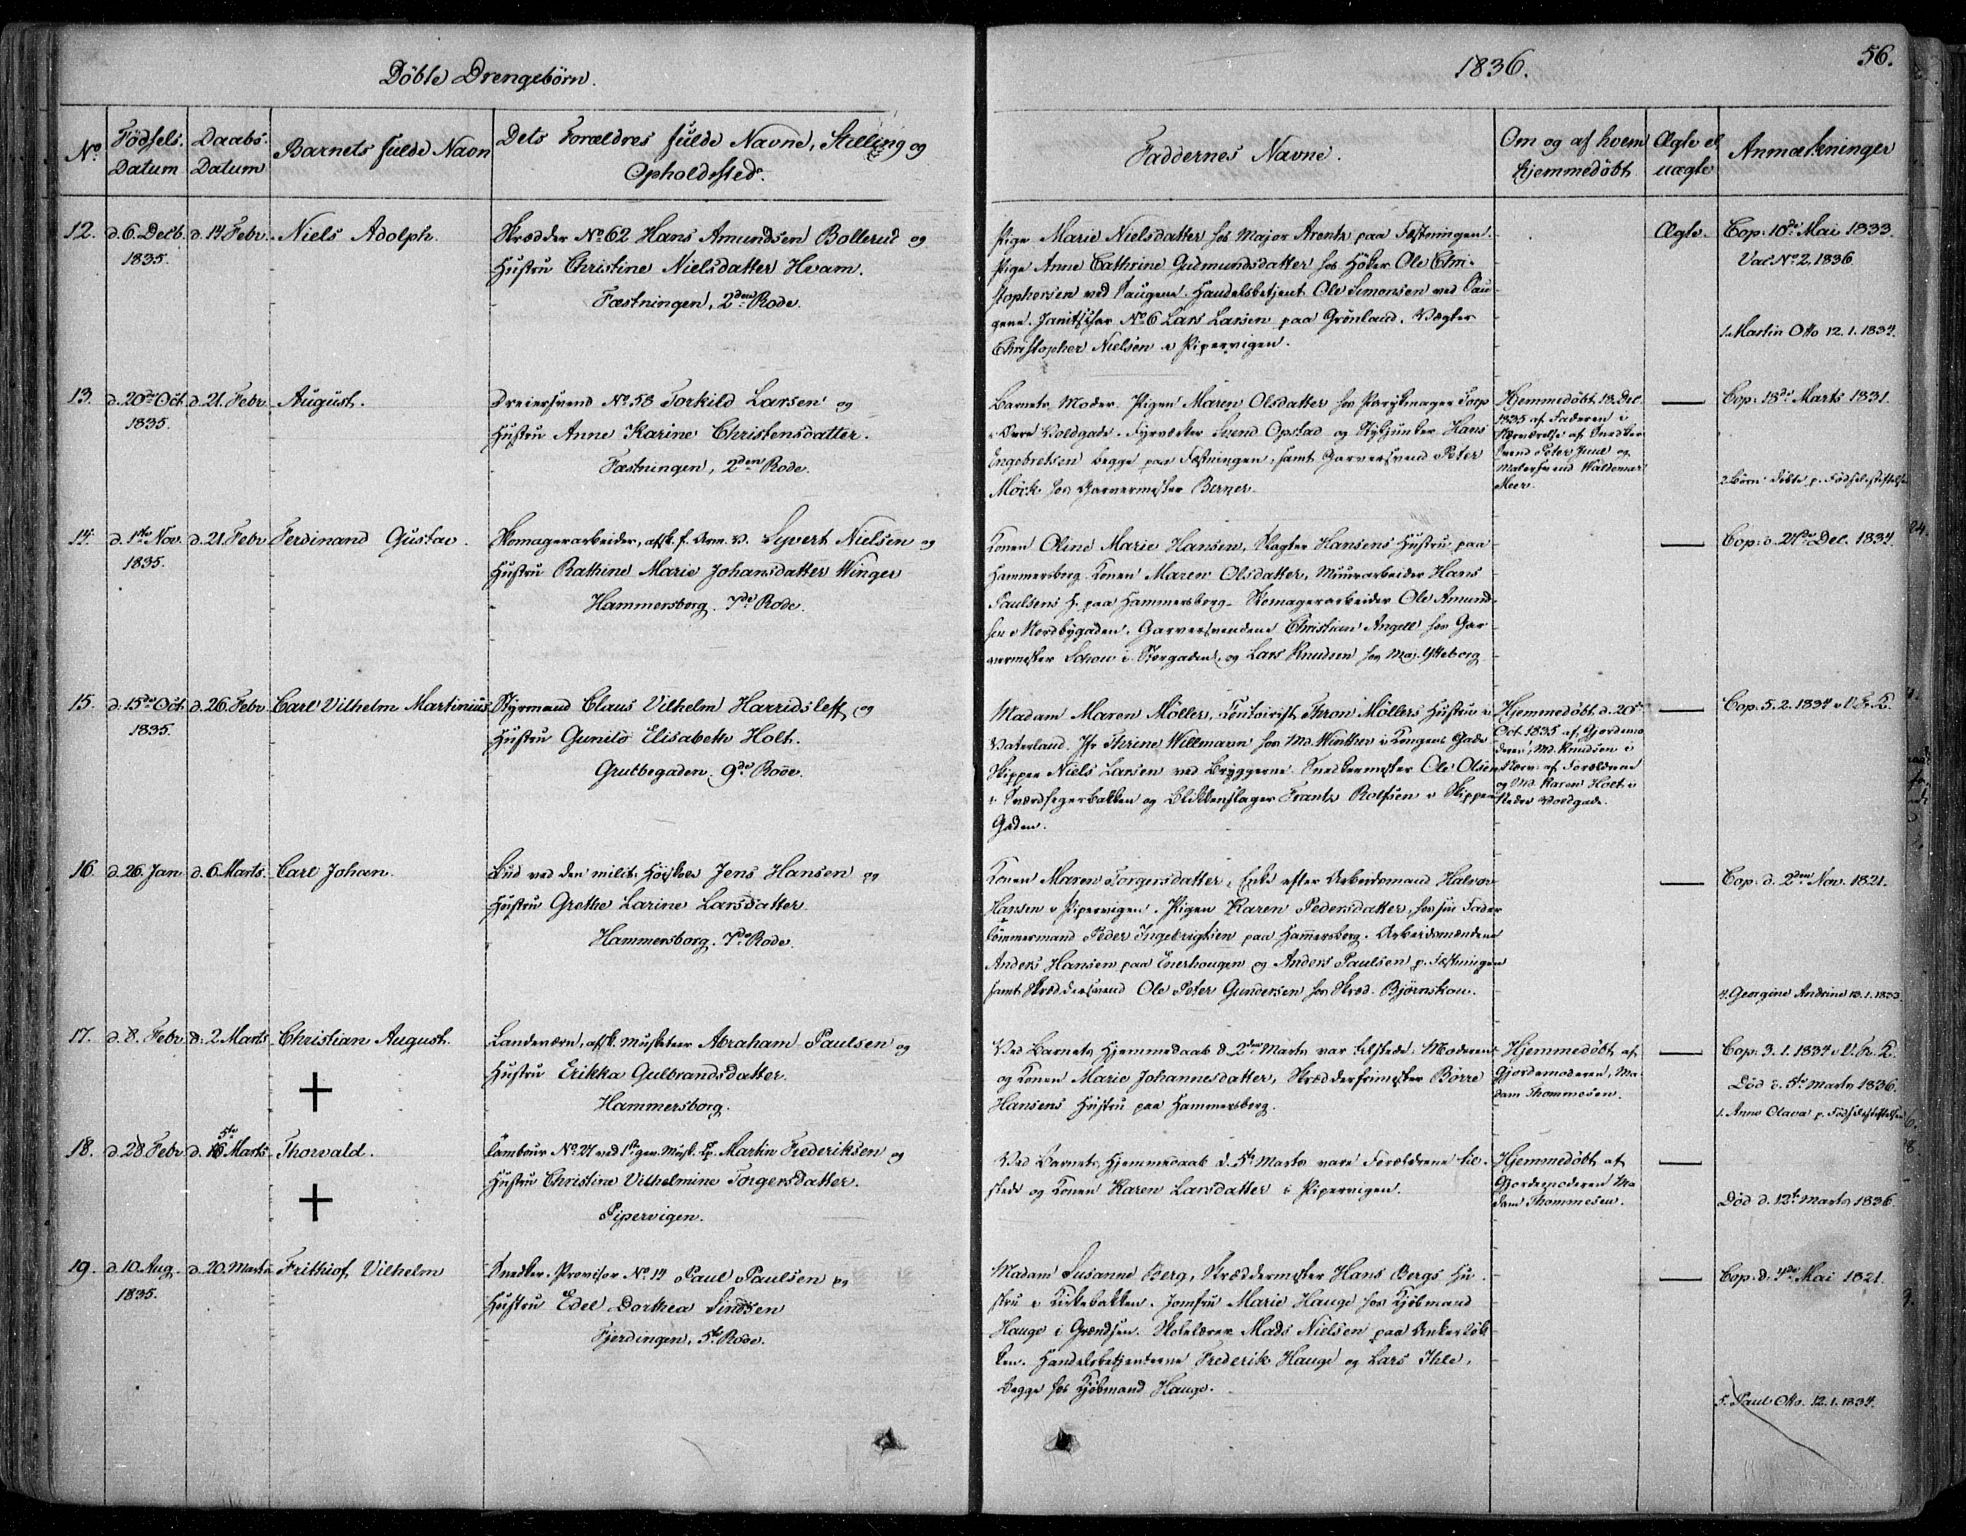 Döbte Drengebörn.
No.
Födsels Datum
Daabs Datum
Barnets fulde Navn
Dets Forældres fulde Navne, Stilling og
Opholdssted.
12. d. 6. Decb. 1835. d. 14 Febr. Niels Adolph.
Skrædder No 62 Hans Amundsen Bollerud og
Hustru Christine Nielsdatter Hvam.
Fæstningen, 2den Rode.
13. d. 20de Oct. 1835. d. 21. Febr. August.
Dreiersvend No 58 Torkild Larsen og
Hustru Anne Karine Christensdatter.
Fæstningen, 2den Rode.
14. d. 1ste Nov. 1835. d. 21. Febr Ferdinand Gustav.
Skomagerarbeider, afsk. f. Arm. v. Syvert Nielsen og
Hustru Kathine Marie Johansdatter Winger
Hammersborg. 7de Rode.
15. d. 15de Oct 1835. d. 26. Febr. Carl Vilhelm Martinius
Styrmand Claus Vilhelm Harridsleff og
Hustru Gunild Elisabeth Holt.
Grubbegaden. 9de Rode.
16. d. 26. Jan d. 6. Marts. Carl Johan.
Bud ved den milit. Höiskole Jens Hansen og
Hustru Grethe Larine Larsdatter.
Hammersborg. 7de Rode.
17. d. 8. Febr. d. 2. Marts Christian August.
Landeværn, afsk. Musketeer Abraham Paulsen og
Hustru Erikka Gulbrandsdatter.
Hammersborg.
18. d. 28 Febr d. 5te Marts. Thorvald.
Tambour No 27 ved 1ste gev. Musk. Cp. Martin Frederiksen og
Hustru Christine Vilhelmine Torgersdatter.
Pipervigen.
19. d. 10. Aug. 1835. d. 20. Marts Frithiof Vilhelm
Snedker. Provisor No 14 Paul Paulsen og
Hustru Edel Dorthea Sindsen
Fjerdingen, 5te Rode.
1836.
56.
Faddernes Navne.
Om og af hvem hjemmedöbt
Ægte el. uægte
Anmærkninger
Pige Marie Nielsdatter hos Major Arentz paa Fæstningen.
Pige Anne Cathrine Gudmundsdatter hos Höker Ole Chri-
stophersen ved Saugene. Handelsbetjent Ole Simonsen ved Sau-
gene. Janitschar No 6 Lars Larsen paa Grönland. Vægter
Christopher Nielsen i Pipervigen.
Ægte.
Cop. 10de Mai 1833.
Vac No 2. 1836
1. Martin Otto 12.1.1834.
Barnets Moder. Pigen Maren Olsdatter hos Parykmager Torp
i Övre Voldgade. Fyrværker Svend Opstad og Stykjunker Hans
Engebretsen begge paa Fæstningen, samt Garversvend Peter
Möck hos Garvermester Berner.
Hjemmedöbt 18. Dec.
1835 af Faderen i
Nærværelse af Snedker
svend Peter Juul og
Malersvend Waldemar
Meer.
Cop. 18de Marts 1831.
2 Börn födte p. Födselsstiftelsen
Konen Oline Marie Hansen, Slagter Hansens Hustru paa
Hammersborg. Konen Maren Olsdatter, Muurarbeider Hans
Paulsens H. paa Hammersborg. Skomagerarbeider Ole Amund-
sen i Nordbygaden. Garversvendene Christian Angell hos Gar-
vermester Schou i Storgaden, og Lars Knudsen hos Maj. Ytteborg
Cop. d. 27de Dec. 1834
Madam Maren Möller, Contoirist Thron Möllers Hustru i
Vaterland. Jfr Thrine Willmann hos Md. Winther i Kongens Gade
Skipper Niels Larsen ved Bryggerne. Snedkermester Ole Olsen
i Sværdfegerbakken og Blikkenslager Frantz Rolfsen i Skipper
Gaden.
Hjemmedöbt d. 20de
Oct. 1835 af Gjordemo
deren, Md. Knudsen i
Nærv. af Forældrene
og Md. Karen Holt i
Nedre Voldgade.
Cop. 5.2.1834 i V. Fr. K.
Konen Maren Torgersdatter, Enke efter Arbeidsmand Halvor
Hansen i Pipervigen. Pigen Karen Pedersdatter, hos sin Fader
Tömmermand Peder Ingebrigtsen paa Hammersborg. Arbeidsmændene
Anders Hansen paa Enerhougen og Anders Paulsen p. Fæstningen
samt Skræddersvend Ole Peter Gundersen hos Skræd. Björnskou.
Cop. d. 2den Nov. 1821.
4. Georgine Andrine 13.1.1833
Ved Barnets Hjemmedaab d. 2den Marts var tilstede. Moderen
og Konen Marie Johannesdatter, Skrædderfrimester Börre
Hansens Hustru paa Hammersborg.
Hjemmedöbt af
Gjordemoderen, Ma-
dam Thommesen.
Cop. 3.1.1834 i V. Fr. K.
Död d. 5te Marts 1836.
1. Anne Olava p. Födselsstiftelsen
Ved Barnets Hjemmedaab d. 5te Marts vare Forældrene til-
stede og Konen Karen Larsdatter i Pipervigen.
Hjemmedöbt af
Gjordemoderen Ma
dam Thommesen.
Död d. 12te Marts 1836.
Madam Susanne Berg, Skræddermester Hans Bergs Hu-
stru i Kirkebakken. Jomfru Marie Hauge hos Kjöbmand
Hauge i Grændsen. Skolelærer Mads Nielsen paa Ankerlök-
ken. Handelsbetjenterne Frederik Hauge og Lars Ihle,
begge hos Kjöbmand Hauge.
Cop. d. 4de Mai 1821.
5. Paul Otto. 12.1.1834.